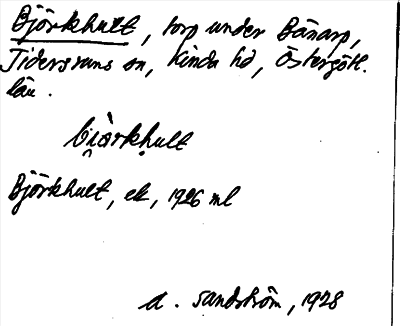 Björkhult, torp under Bänarp,
Tidersrums sn, Kinda hd, Östergötl.
län.
bi̯àrkhult
Björkhult, ek, 1926 ml
A. Sandström, 1928